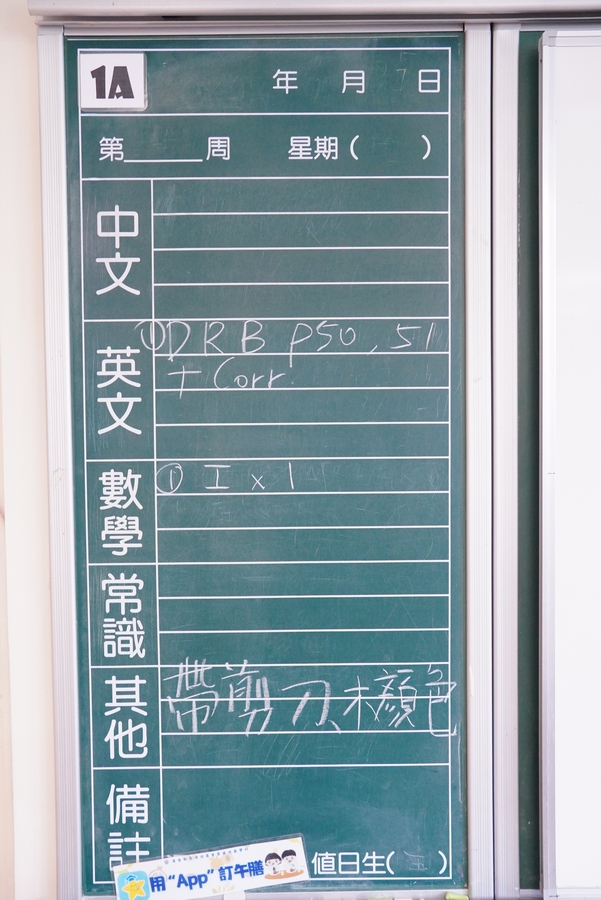 1A
年 月 日
第______周 星期( )
中文
英文
① DRB P50, 51
+ Corr.
數學
① 工 x 1
常識
其他
帶剪刀、木顏色
備註
用“App”訂午膳
值日生( )